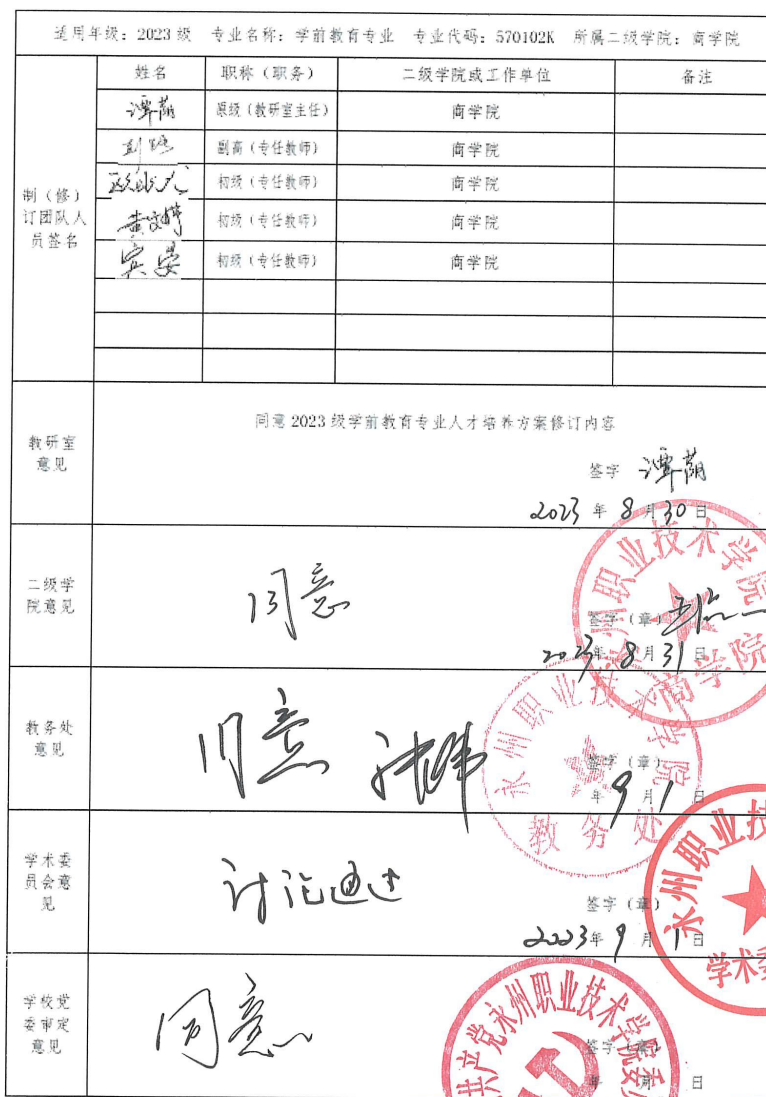 适用年级：2023 级 专业名称：学前教育专业 专业代码：570102K 所属二级学院：商学院
制（修）订团队人员签名
姓名 职称（职务） 二级学院或工作单位 备注
谭蔚 原级（教研室主任） 商学院
副高（专任教师） 商学院
初级（专任教师） 商学院
黄文婷 初级（专任教师） 商学院
宾晏 初级（专任教师） 商学院
教研室
意见
同意 2023 级学前教育专业人才培养方案修订内容
签字
2023 年 8 月 30 日
二级学
院意见
同意
签字（章）
2023 年 8 月 31 日
永州职业技术学院
商学院
教务处
意见
同意
签字（章）
年 9 月 1 日
永州职业技术学院
教务处
学术委
员会意
见
讨论通过
签字（章）
2023 年 9 月 1 日
永州职业技
学术委
学校党
委审定
意见
同意
签字（章）
年 月 日
共产党永州职业技术学院委